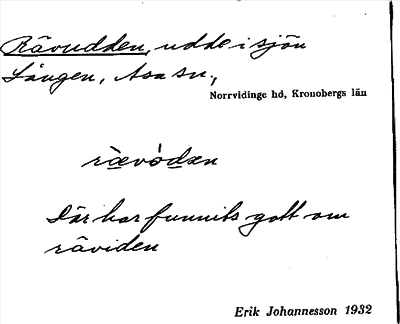 Rävudden, udde i sjön
Lången, Asa sn,
Norrvidinge hd, Kronobergs län
rævódæn
Där har funnits gott om
räviden
Erik Johannesson 1932